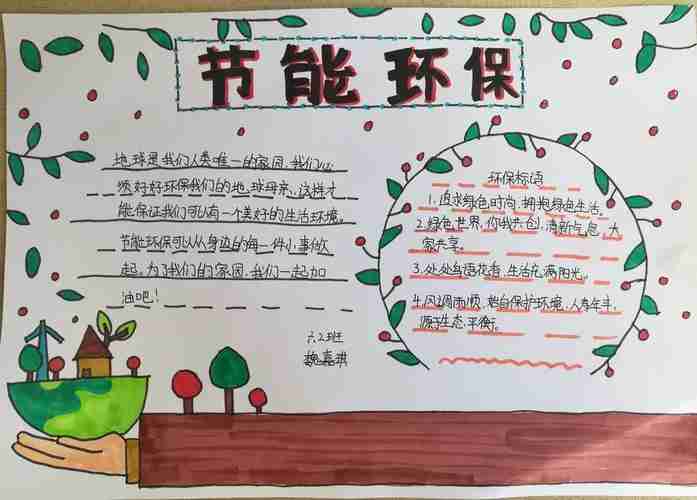 节能环保
地球是我们人类唯一的家园,我们必
须好好环保我们的地球母亲,这样才
能保证我们可以有一个美好的生活环境。
节能环保可以从身边的每一件小事做
起,为了我们的家园,我们一起加
油吧!
六.2班
魏嘉琪
环保标语
1.追求绿色时尚,拥抱绿色生活。
2.绿色世界,你我共创,清新气息,大
家共享。
3.处处鸟语花香,生活充满阳光。
4.风调雨顺,始自保护环境,人寿年丰,
源于生态平衡。